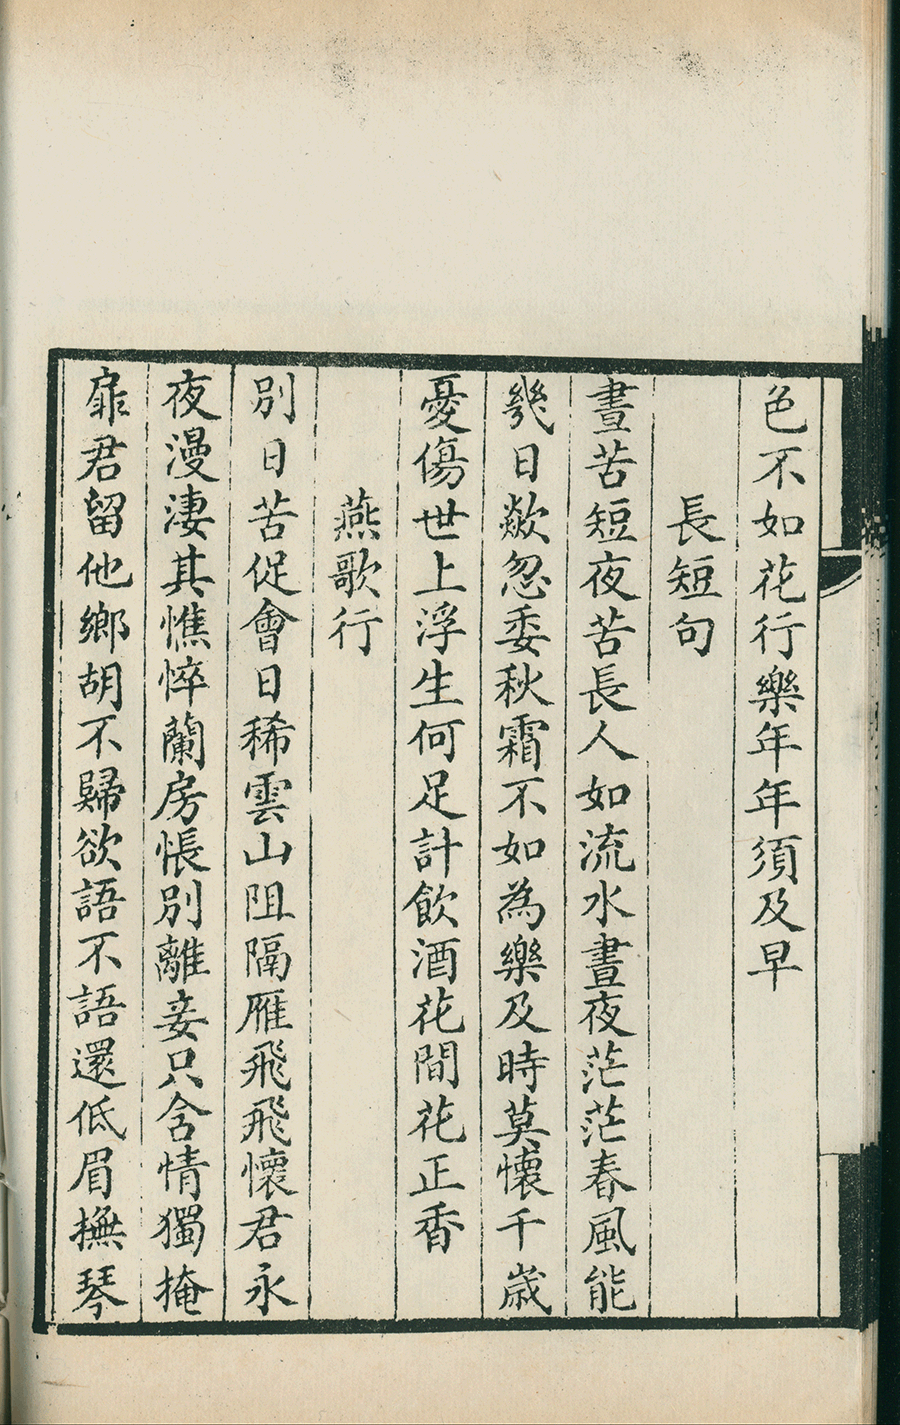 色不如花行樂年年須及早
長短句
晝苦短夜苦長人如流水晝夜茫茫春風能
幾日歘忽委秋霜不如為樂及時莫懷千歲
憂傷世上浮生何足計飲酒花間花正香
燕歌行
別日苦促會日稀雲山阻隔雁飛飛懷君永
夜漫淒其憔悴蘭房悵別離妾只含情獨掩
扉君留他鄉胡不歸欲語不語還低眉撫琴